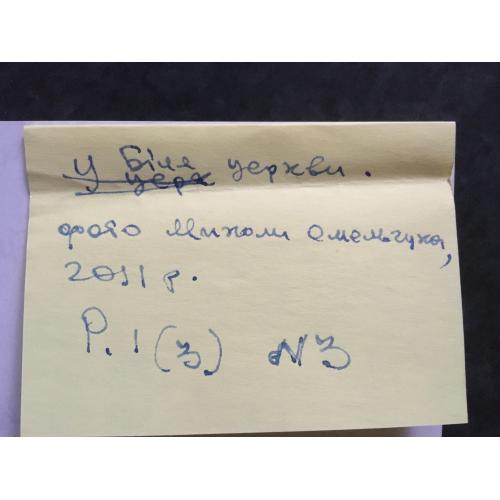 У Біля церкви.
церк
фото Миколи Омельчука,
2011 р.
Р. 1 (3) №3